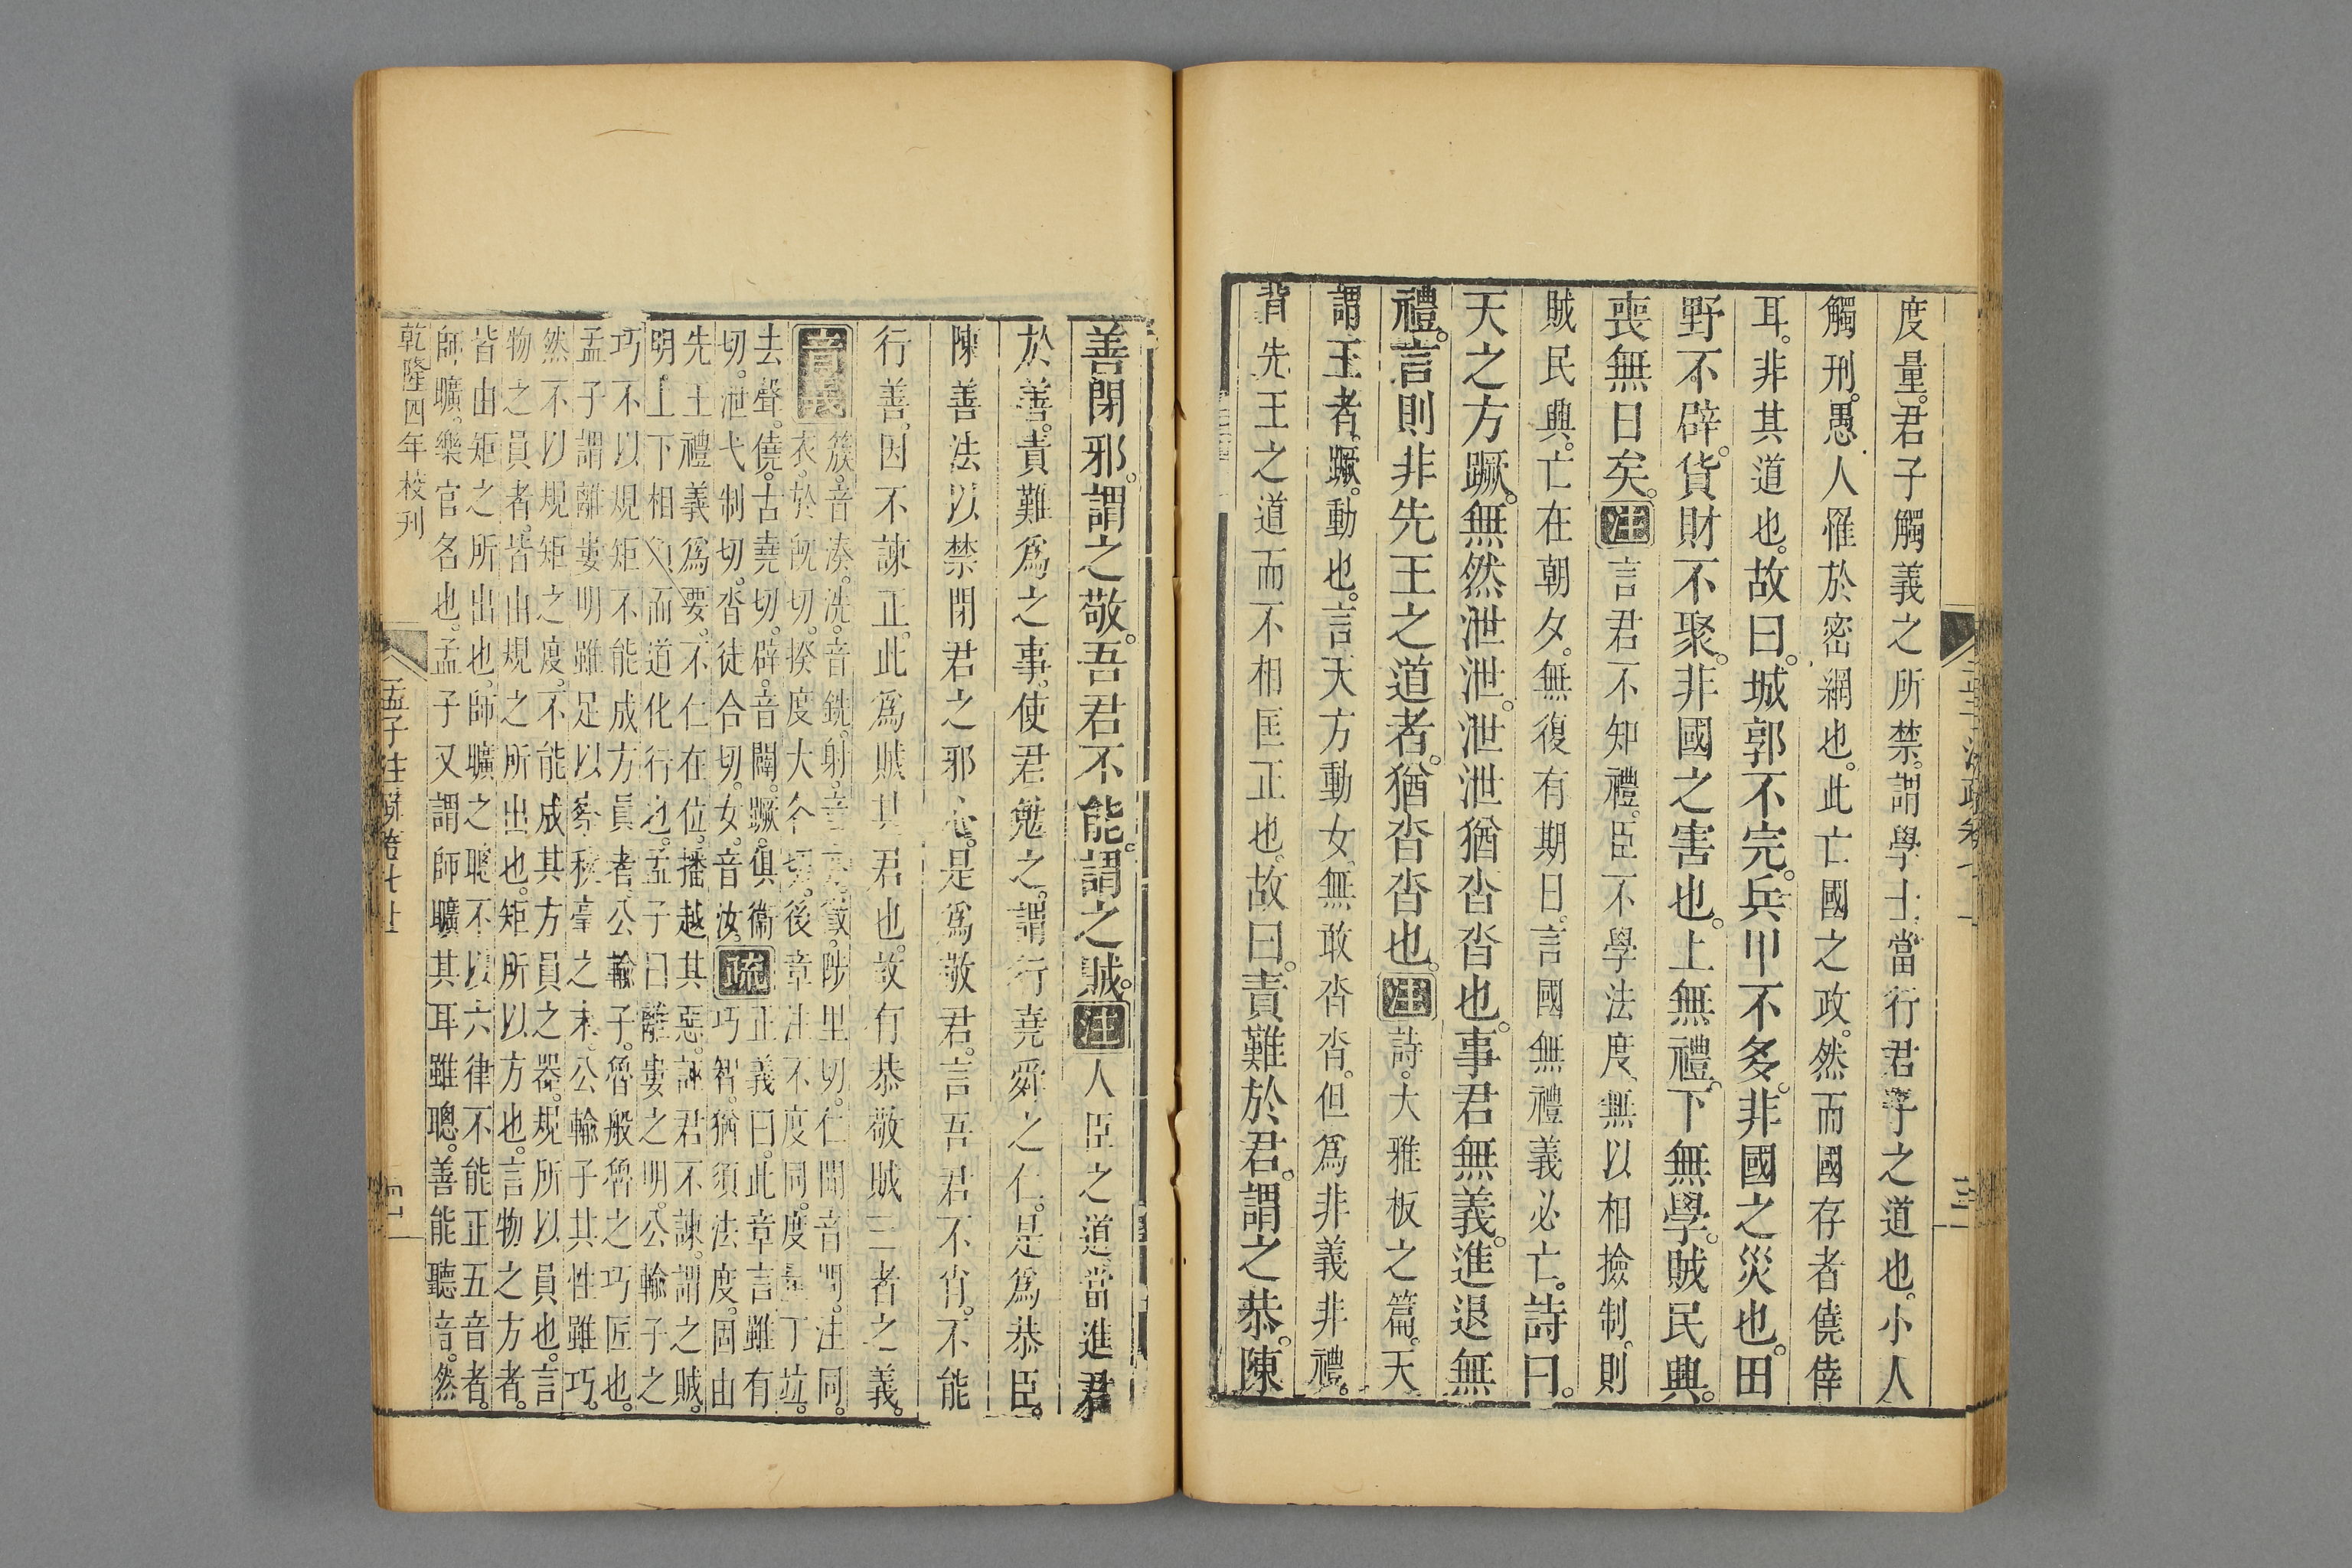 度量。君子觸義之所禁。謂學士當行君子之道也。小人
觸刑。愚人罹於密網也。此亡國之政。然而國存者僥倖
耳。非其道也。故曰。城郭不完。兵甲不多。非國之災也。田
野不辟。貨財不聚。非國之害也。上無禮。下無學。賊民興。
喪無日矣。注言君不知禮。臣不學法度。無以相撿制。則
賊民興。亡在朝夕。無復有期日。言國無禮義必亡。詩曰。
天之方蹶。無然泄泄。泄泄猶沓沓也。事君無義。進退無
禮。言則非先王之道者。猶沓沓也。注詩。大雅板之篇。天
謂王者。蹶。動也。言天方動女。無敢沓沓。但爲非義非禮。
背先王之道而不相匡正也。故曰。責難於君。謂之恭。陳
善閉邪。謂之敬。吾君不能。謂之賊。注人臣之道。當進君
於善。責難爲之事。使君勉之。謂行堯舜之仁。是爲恭臣。
陳善法以禁閉君之邪心。是爲敬君。言吾君不肖。不能
行善。因不諫正。此爲賊其君也。故有恭敬賊三者之義。
音義簇。音湊。洗。音銑。射。音亦。徵。陟里切。仁聞。音問。注同。
衣。於旣切。揆度。大各切。後章注不度同。度量。丁竝。
去聲。僥。古堯切。辟。音闢。蹶。俱衞
切。泄。弋制切。沓。徒合切。女。音汝。疏正義曰。此章言雖有
巧智。猶須法度。國由
先王禮義爲要。不仁在位。播越其惡。誣君不諫。謂之賊。
明上下相須而道化行也。孟子曰離婁之明。公輸子之
巧。不以規矩。不能成方員者。公輸子。魯般。魯之巧匠也。
孟子謂離婁明雖足以察秋毫之末。公輸子其性雖巧。
然不以規矩之度。不能成其方員之器。規所以員也。言
物之員者。皆由規之所出也。矩所以方也。言物之方者。
皆由矩之所出也。師曠之聰。不以六律。不能正五音者。
師曠。樂官名也。孟子又謂師曠其耳雖聰。善能聽音。然
乾隆四年校刊
孟子注疏卷七上